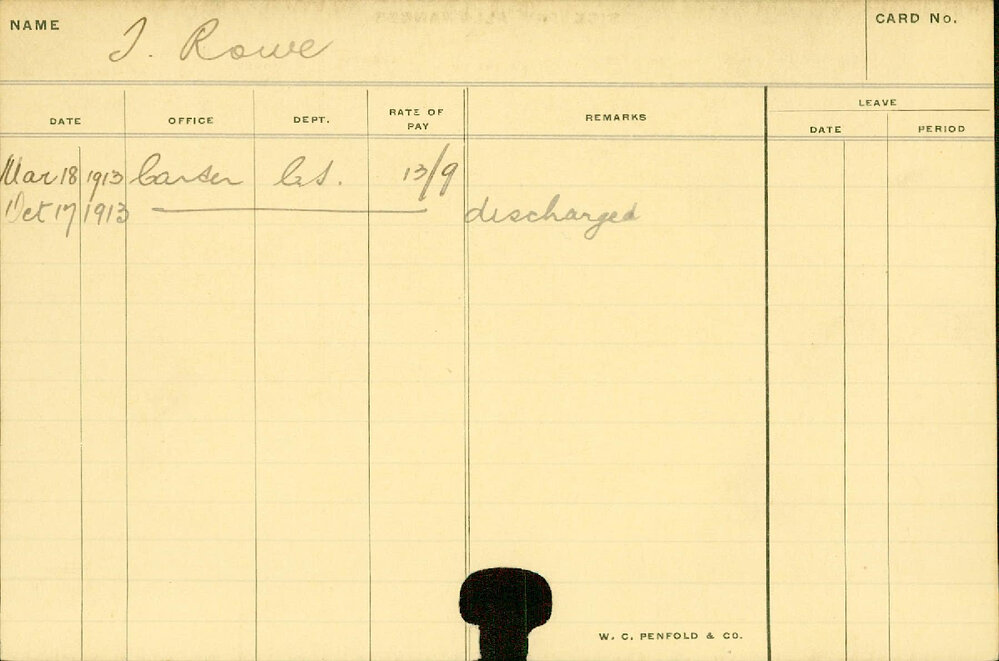 NAME T. Rowe CARD No.
DATE OFFICE DEPT. RATE OF PAY REMARKS LEAVE DATE PERIOD
Mar 18 1913 Carter C.S. 13/9
Oct 17 1913 discharged
W. C. PENFOLD & CO.